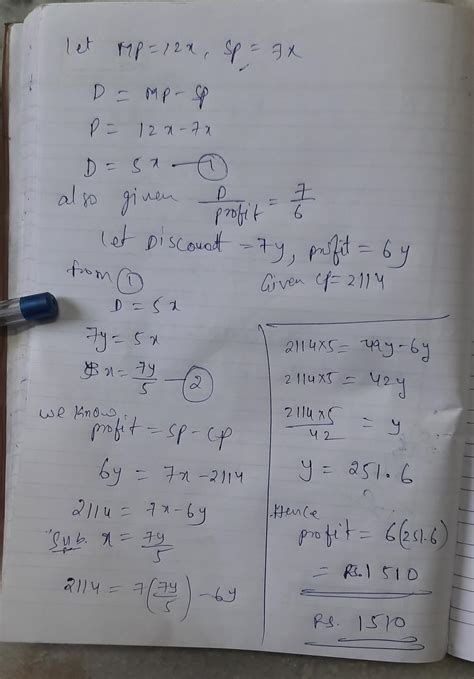 let MP=12x, SP=7x
D = MP-SP
P = 12x-7x
D = 5x — ①
also given D/profit = 7/6
let Discount = 7y, profit = 6y
from ①
Given CP=2114
D = 5x
7y = 5x
x = 7y/5 — ②
we know
profit = SP-CP
6y = 7x-2114
2114 = 7x-6y
Sub. x = 7y/5
2114 = 7(7y/5) -6y
2114×5 = 49y-6y
2114×5 = 42y
2114×5/42 = y
y = 251.6
Hence
profit = 6(251.6)
= Rs.1510
Rs. 1510